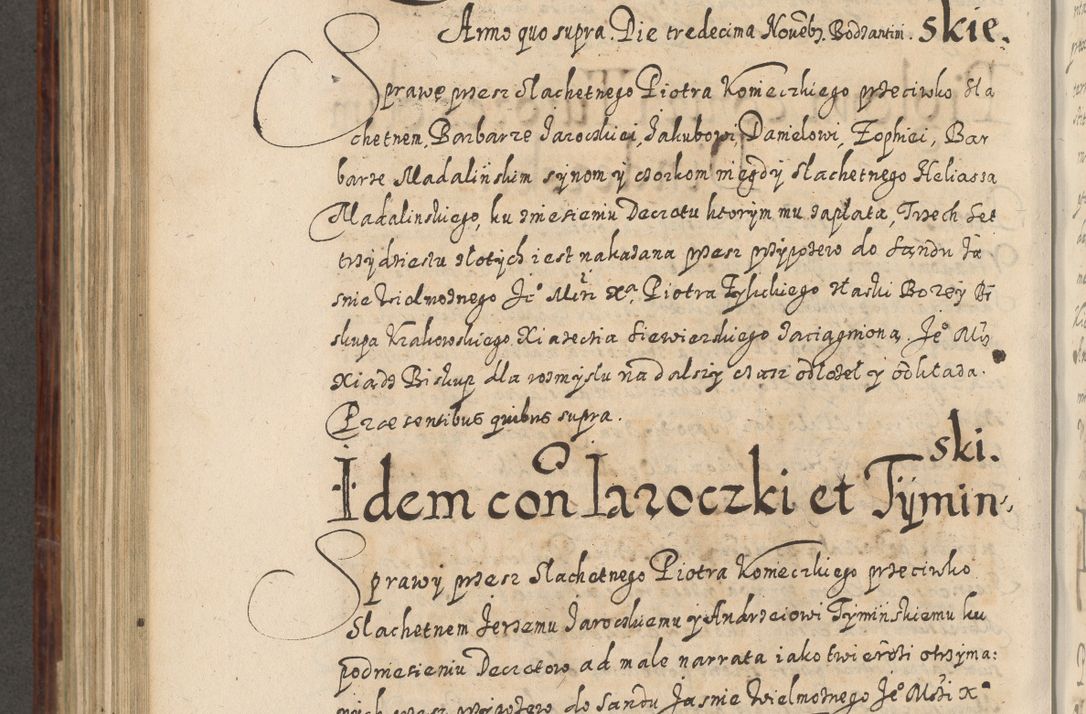 skie.
Anno quo supra. Die tredecima Nouẽb. Bodzantini.
Sprawę przez Slachetnego Piotra Konieczkiego przeciwko Sla
chetnem, Barbarze Jaroczkiei, Jakubowi, Danielowi, Zophiei, Bar
barze Madalińskim synom y czorkom niegdy Slachetnego Heliassa
Madalinskiego, ku zniesieniu Decretu ktorym mu zapłata, Trzech Set
trzydziestu złotych iest nakazana przez przypozew do Sandu Ja
snie Wielmoznego Je° Mści X°. Piotra Zylickiego z łaski Bozey Bi
skupa Krakowskiego. Xiazecia Siewierskiego zaciągniona. Je° Mśc
Xiadz Biskup dla rozmyslu na dalszy czasz odłozeł y odkłada.
Præsentibus quibus supra.
ski.
Idem con Iaroczki et Tÿmin-
Sprawy przesz Slachetnego Piotra Konieczkiego przeciwko
Slachetnem Jerzemu Jaroczkiemu y Andrzeiowi Tymińskiemu ku
podniesieniu Decretow ad male narrata iako twierdzi otrzyma:
nych przez przypozew do Sandu Jasnie Wielmoznego Je° Mści X°